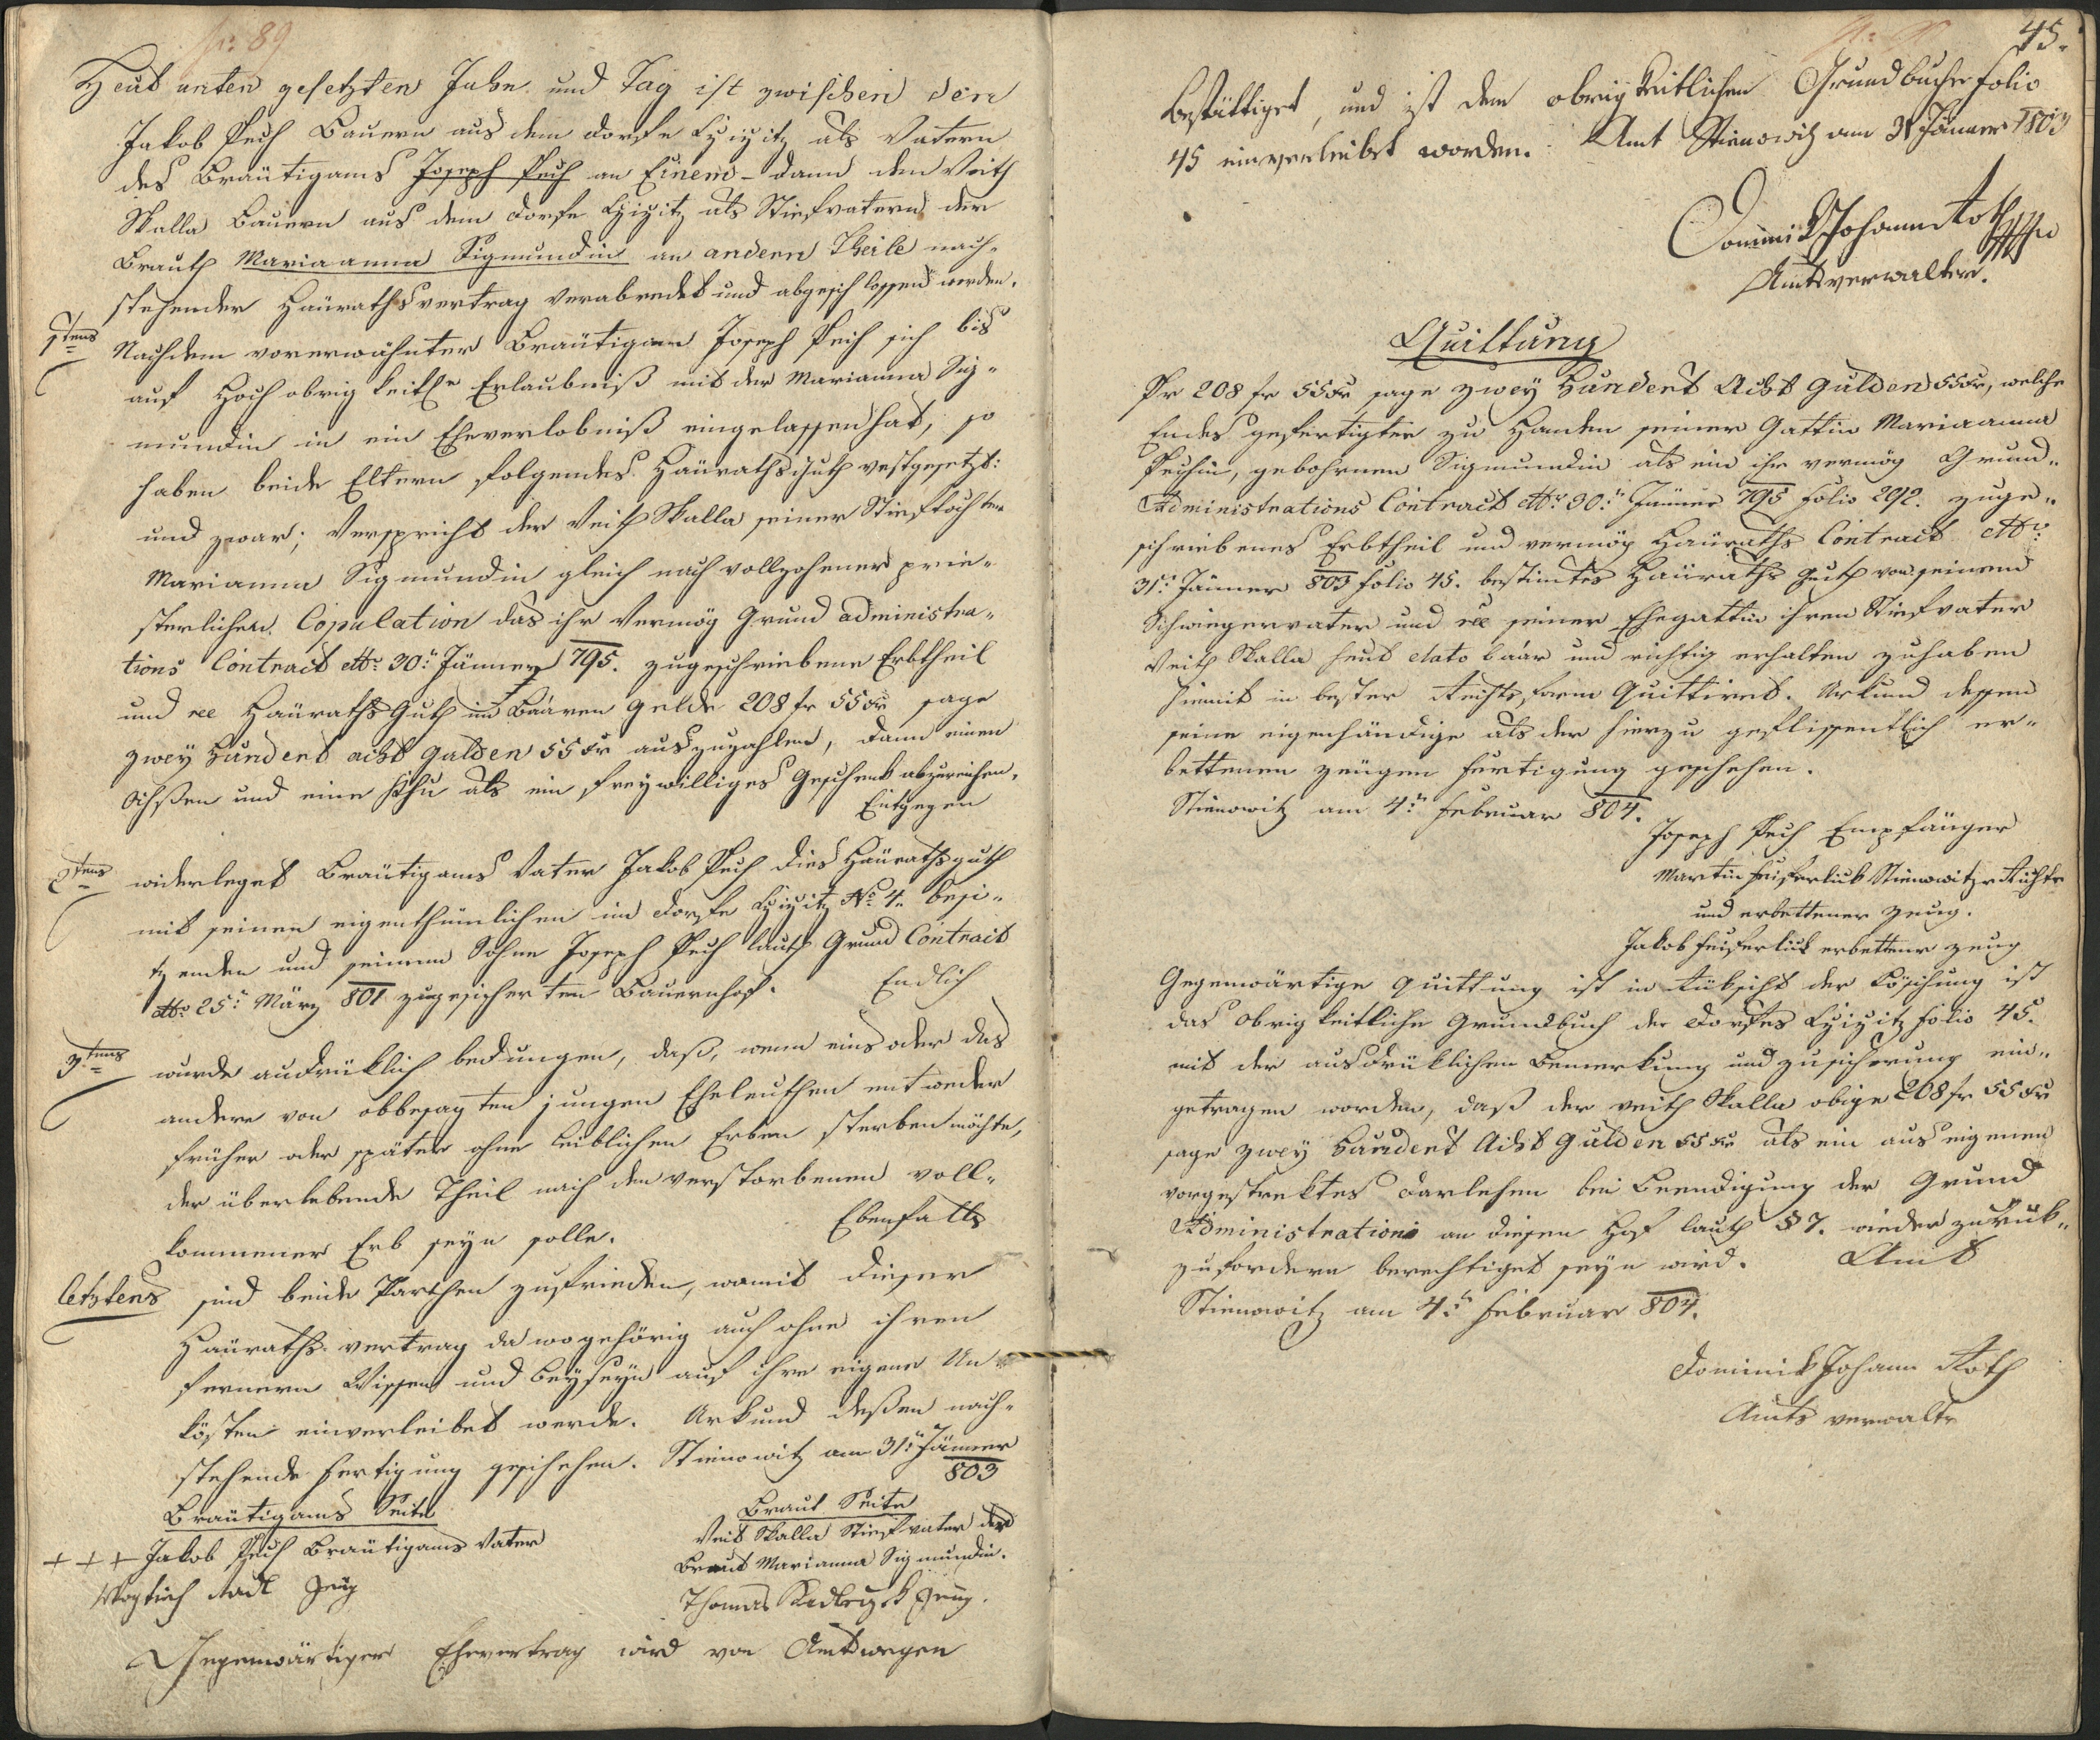 Nr: 89
Heut unten gesetzten Jahr und Tag ist zwischen dem
Jakob Pech Bauern aus dem Dorfe als Vatern
des Bräutigams Joseph Pech an Einem – dann dem Veith
Skalla Bauern aus dem Dorfe als Stiefvatern der
Brauth Mariaanna Sigmundin an andern Theile nach-
stehender Häuraths vertrag verabredet und abgeschlossen worden.
1tens Nachdem vorerwähnter Bräutigam Joseph Pech sich bis
auf Hoch obrigkeitle Erlaubniß mit der Marianna Sig-
mundin in ein Eheverlobniß eingelassen hat, so
haben beide Eltern folgendes Häuraths Guth vestgesetzt:
und zwar; Verspricht der Veith Skalla seiner Stieftochter
Marianna Sigmundin gleich nach vollzohener prie-
sterlicher Copulation das ihr Vermög Grund administra-
tions Contract dtto 30n Jänner 795. zugeschriebene Erbtheil
und ree Häuraths Guth im Baaren Gelde 208 fr 55 xr sage
zwey Hundert acht Gulden 55 xr auszuzahlen, dann einen
Ochßen und eine Khu als ein freywilliges Geschenk abzureichen.
Entgegen
2tens widerleget Bräutigams Vater Jakob Pech dies Häurathsguth
mit seinen eigenthümlichen im Dorfe No 4. besi-
tzenden und seinem Sohne Joseph Pech lauth Grund Contract
dtto 25n März 801 zugesicherten Bauernhof. Endlich
3tens wurde audrüklich bedungen, daß, wenn eins oder das
andere von obbesagten jungen Eheleuthen entweder
früher oder später ohne leiblichen Erben sterben möchte,
der überlebende Theil nach dem verstorbenen voll-
kommener Erb seyn solle. Ebenfalls
letztens sind beide Parthen zufrieden, womit dieser
Häuraths vertrag da wo gehörig auch ohne ihren
fernern Wissen und Beyseyn auf ihre eigene Un-
kösten einverleibet werde. Urkund deßen nach-
stehende Fertigung geschehen. Stienowitz am 31n Jänner
803
Bräutigams Seite
Braut Seite
+ + + Jakob Pech Bräutigams Vater
Veit Skalla Stiefvater der
Braut Marianna Sigmundin.
Zeug
Thomas Zeug.
Gegenwärtiger Ehevertrag wird von Amtswegen
45.
bestättiget, und ist dem obrigkeitlichen Grundbuche folio
45 einverleibet worden. Amt Stienowitz am 31 Jänner 1803
Dominik Johann Roth
Amtsverwalter.
Quittung
Pr 208 fr 55 xr sage zwey Hundert Acht Gulden 55 xr, welche
Endes gefertigter zu Handen seiner Gattin Mariaanna
Pechin, gebohrnen Sigmundin als ein ihr vermög Grund-
Administrations Contract dtto 30n Jänner 795 folio 292. zuge-
schriebenes Erbtheil und vermög Häuraths Contract dtto
31n Jänner 803 folio 45. bestimtes Häuraths Guth von seinem
Schwiegervater und ree seiner Ehegattin ihren Stiefvater
Veith Skalla heut dato baar und richtig erhalten zuhaben
hiemit in bester Rechts form Quittiret. Urkund dessen
seine eigenhändige als der hierzu geflissentlich er-
bettenen Zeugen Fertigung geschehen.
Stienowitz am 4n Februar 804.
Joseph Pech Empfänger
Martin Stienowitzr Richtr
und erbettener Zeug.
Jakob erbettener Zeug
Gegenwärtige Quittung ist in Rüksicht der Löschung ist
das obrigkeitliche Grundbuch des Dorfes folio 45.
mit der ausdrüklichen Bemerkung und Zusicherung ein-
getragen worden, daß der Veith Skalla obige 208 fr 55 xr
sage zwey Hundert Acht Gulden 55 xr als ein aus eigenen
vorgestrektes Darlehen bei Beendigung der Grund
Administration an diesen Hof lauth § 7. wieder zuruk-
zufordern berechtiget seyn wird. Amt
Stienowitz am 4n Februar 804.
Dominik Johann Roth
Amts verwaltr